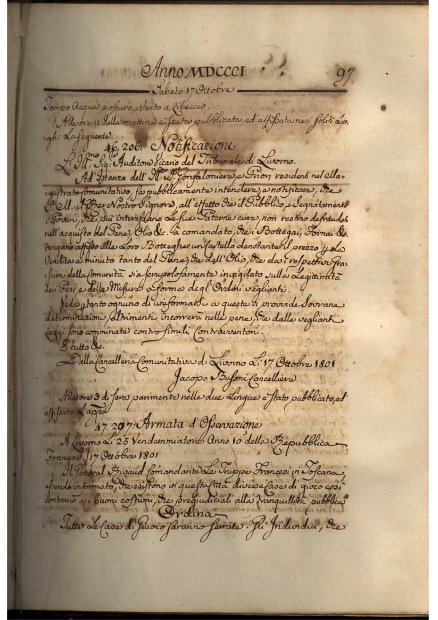 Anno MDCCCI
97
Sabato 17 Ottobre
Tempo Acqua, e oscuro, Vento a Libeccio
Alle ore 11 della mattina è stata pubblicata, ed affissata nei soliti Luo-
ghi La seguente
46. 206. Notificazione
L' Ill.mo Sig.re Auditore Vicario del Tribunale di Livorno.
Ad Istanza dell' Gonfaloniere, e Priori residenti nel Ma-
gistrato Comunitativo, fa pubblicamente intendere, e notificare, che
S. M. il Re Nostro Signore, all' effetto che il Pubblico, e segnatamente i
Poveri, che più interessano Le sue Paterne cure, non restino defraudati
nell' acquisto del Pane, Olio &c. ha comandato, che i Bottegai, Fornai &c.
tengano affisso alle Loro Botteghe un Cartello denotante il prezzo per La
Vendita a minuto tanto del Pane, che dell' Olio, che dai respettivi Gra-
scieri della Comunità sia scrupolosamente invigilato sulla Legittimità
dei Pesi, e delle Misure a forma degl' Ordini veglianti.
Veda pertanto ognuno di uniformarsi a queste di provvide Sovrane
determinazioni, altrimenti incorrerà nelle pene, che dalle veglianti
Leggi sono comminate contro simili Contravventori.
E tutto &c.
Dalla Cancelleria Comunitativa di Livorno Li 17 Ottobre 1801
Jacopo Busoni Cancelliere
Alle ore 3 di sera parimente nelle due Lingue è stato pubblicato, ed
affissato L'appo
47. 207. Armata d'Osservazione
A Livorno Li 25 Vendemmiatore Anno 10 della Repubblica
Francese 17 Ottobre 1801
Il General Comandante Le Truppe Francesi in Toscana,
essendo informato, che esistono in questa Città diverse Case di gioco così
contrario ai buoni costumi, che pregiudiciali alla tranquillità pubblica
Ordina
Tutte Le Case di Giuoco saranno serrate. Gli Individui, che